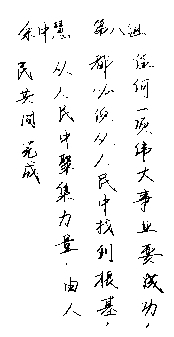 宋中慧 第八组
任何一项伟大事业要成功，
都必须从人民中找到根基，
从人民中聚集力量，由人
民共同完成